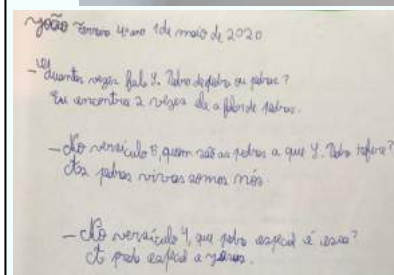 João Ferreira 4º ano 1 de maio de 2020
- Quantas vezes fala S. Pedro de pedra ou pedras?
Eu encontrei 2 vezes ele a falar de pedras.
- No versículo 5, quem são as pedras a que S. Pedro refere?
As pedras vivas somos nós.
- No versículo 4, que pedra especial é essa?
A pedra especial é Jesus.